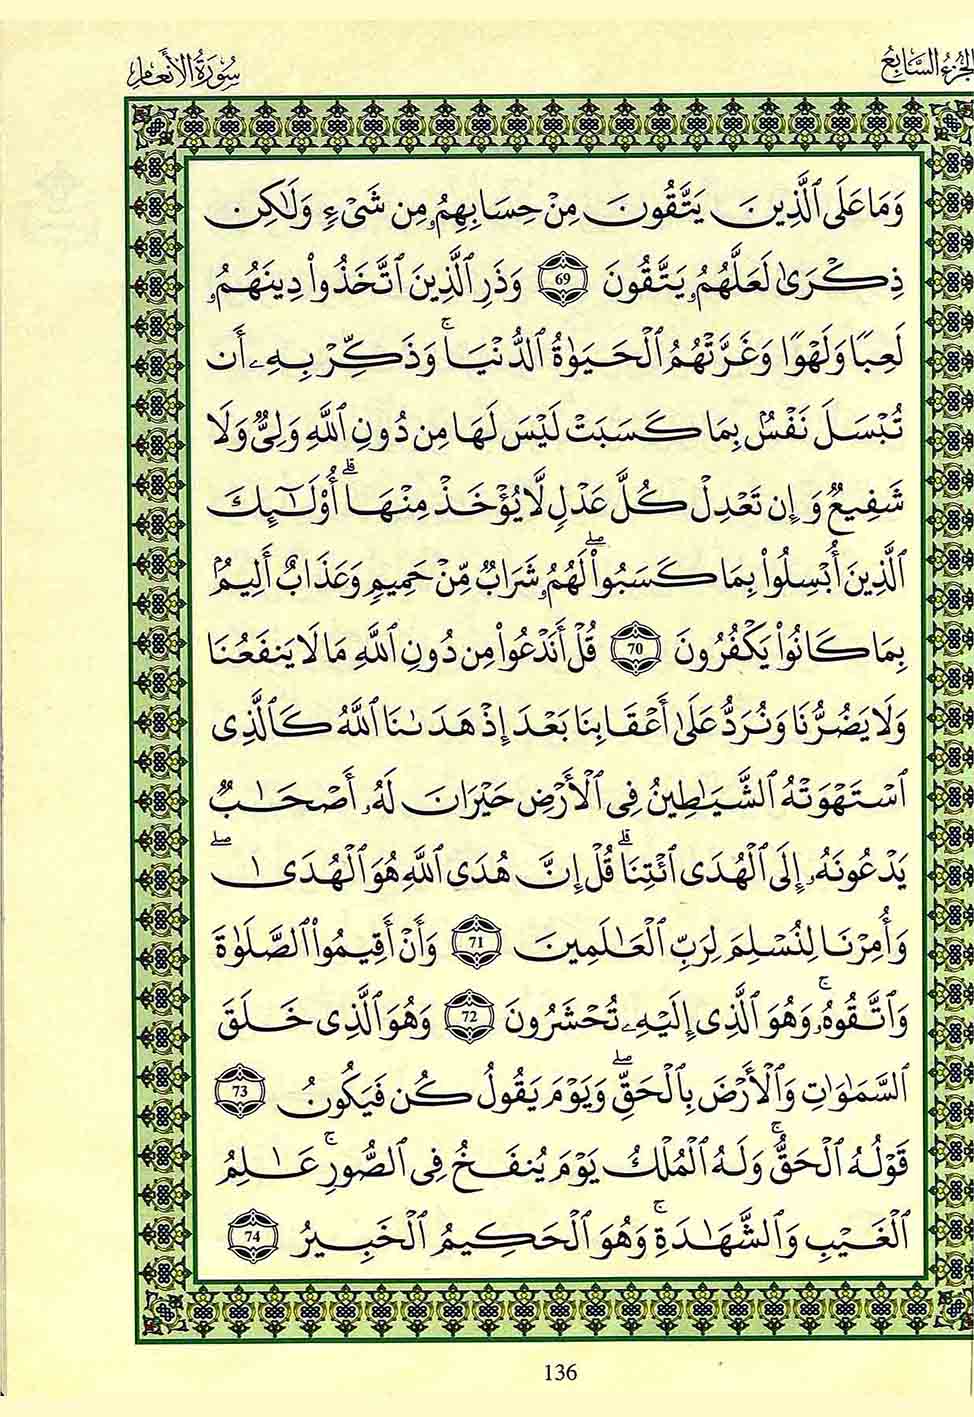 الجزء السابع
سورة الأنعام
وَمَا عَلَى ٱلَّذِينَ يَتَّقُونَ مِنْ حِسَابِهِمُۥ مِن شَىْءٍ وَلَٰكِن
ذِكْرَىٰ لَعَلَّهُمُۥ يَتَّقُونَ 69 وَذَرِ ٱلَّذِينَ ٱتَّخَذُوا۟ دِينَهُمُۥ
لَعِبًا وَلَهْوًا وَغَرَّتْهُمُ ٱلْحَيَوٰةُ ٱلدُّنْيَا ۚ وَذَكِّرْ بِهِۦ أَن
تُبْسَلَ نَفْسٌۢ بِمَا كَسَبَتْ لَيْسَ لَهَا مِن دُونِ ٱللَّهِ وَلِىٌّ وَلَا
شَفِيعٌ وَإِن تَعْدِلْ كُلَّ عَدْلٍ لَّا يُؤْخَذْ مِنْهَا ۗ أُو۟لَٰٓئِكَ
ٱلَّذِينَ أُبْسِلُوا۟ بِمَا كَسَبُوا۟ ۖ لَهُمُۥ شَرَابٌ مِّنْ حَمِيمٍ وَعَذَابٌ أَلِيمٌۢ
بِمَا كَانُوا۟ يَكْفُرُونَ 70 قُلْ أَنَدْعُوا۟ مِن دُونِ ٱللَّهِ مَا لَا يَنفَعُنَا
وَلَا يَضُرُّنَا وَنُرَدُّ عَلَىٰٓ أَعْقَابِنَا بَعْدَ إِذْ هَدَىٰنَا ٱللَّهُ كَٱلَّذِى
ٱسْتَهْوَتْهُ ٱلشَّيَٰطِينُ فِى ٱلْأَرْضِ حَيْرَانَ لَهُۥ أَصْحَٰبٌ
يَدْعُونَهُۥ إِلَى ٱلْهُدَى ٱئْتِنَا ۗ قُلْ إِنَّ هُدَى ٱللَّهِ هُوَ ٱلْهُدَىٰ ۖ
وَأُمِرْنَا لِنُسْلِمَ لِرَبِّ ٱلْعَٰلَمِينَ 71 وَأَنْ أَقِيمُوا۟ ٱلصَّلَوٰةَ
وَٱتَّقُوهُۥ ۚ وَهُوَ ٱلَّذِى إِلَيْهِۦ تُحْشَرُونَ 72 وَهُوَ ٱلَّذِى خَلَقَ
ٱلسَّمَٰوَٰتِ وَٱلْأَرْضَ بِٱلْحَقِّ ۖ وَيَوْمَ يَقُولُ كُن فَيَكُونُ 73
قَوْلُهُ ٱلْحَقُّ ۚ وَلَهُ ٱلْمُلْكُ يَوْمَ يُنفَخُ فِى ٱلصُّورِ ۚ عَٰلِمُ
ٱلْغَيْبِ وَٱلشَّهَٰدَةِ ۚ وَهُوَ ٱلْحَكِيمُ ٱلْخَبِيرُ 74
136